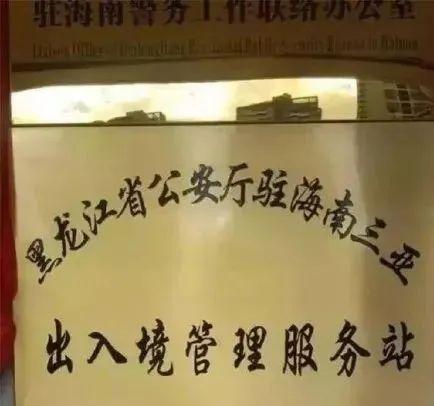 驻海南警务工作联络办公室
Liaison Office of Heilongjiang Provincial Public Security Bureau in Hainan
黑龙江省公安厅驻海南三亚
出入境管理服务站